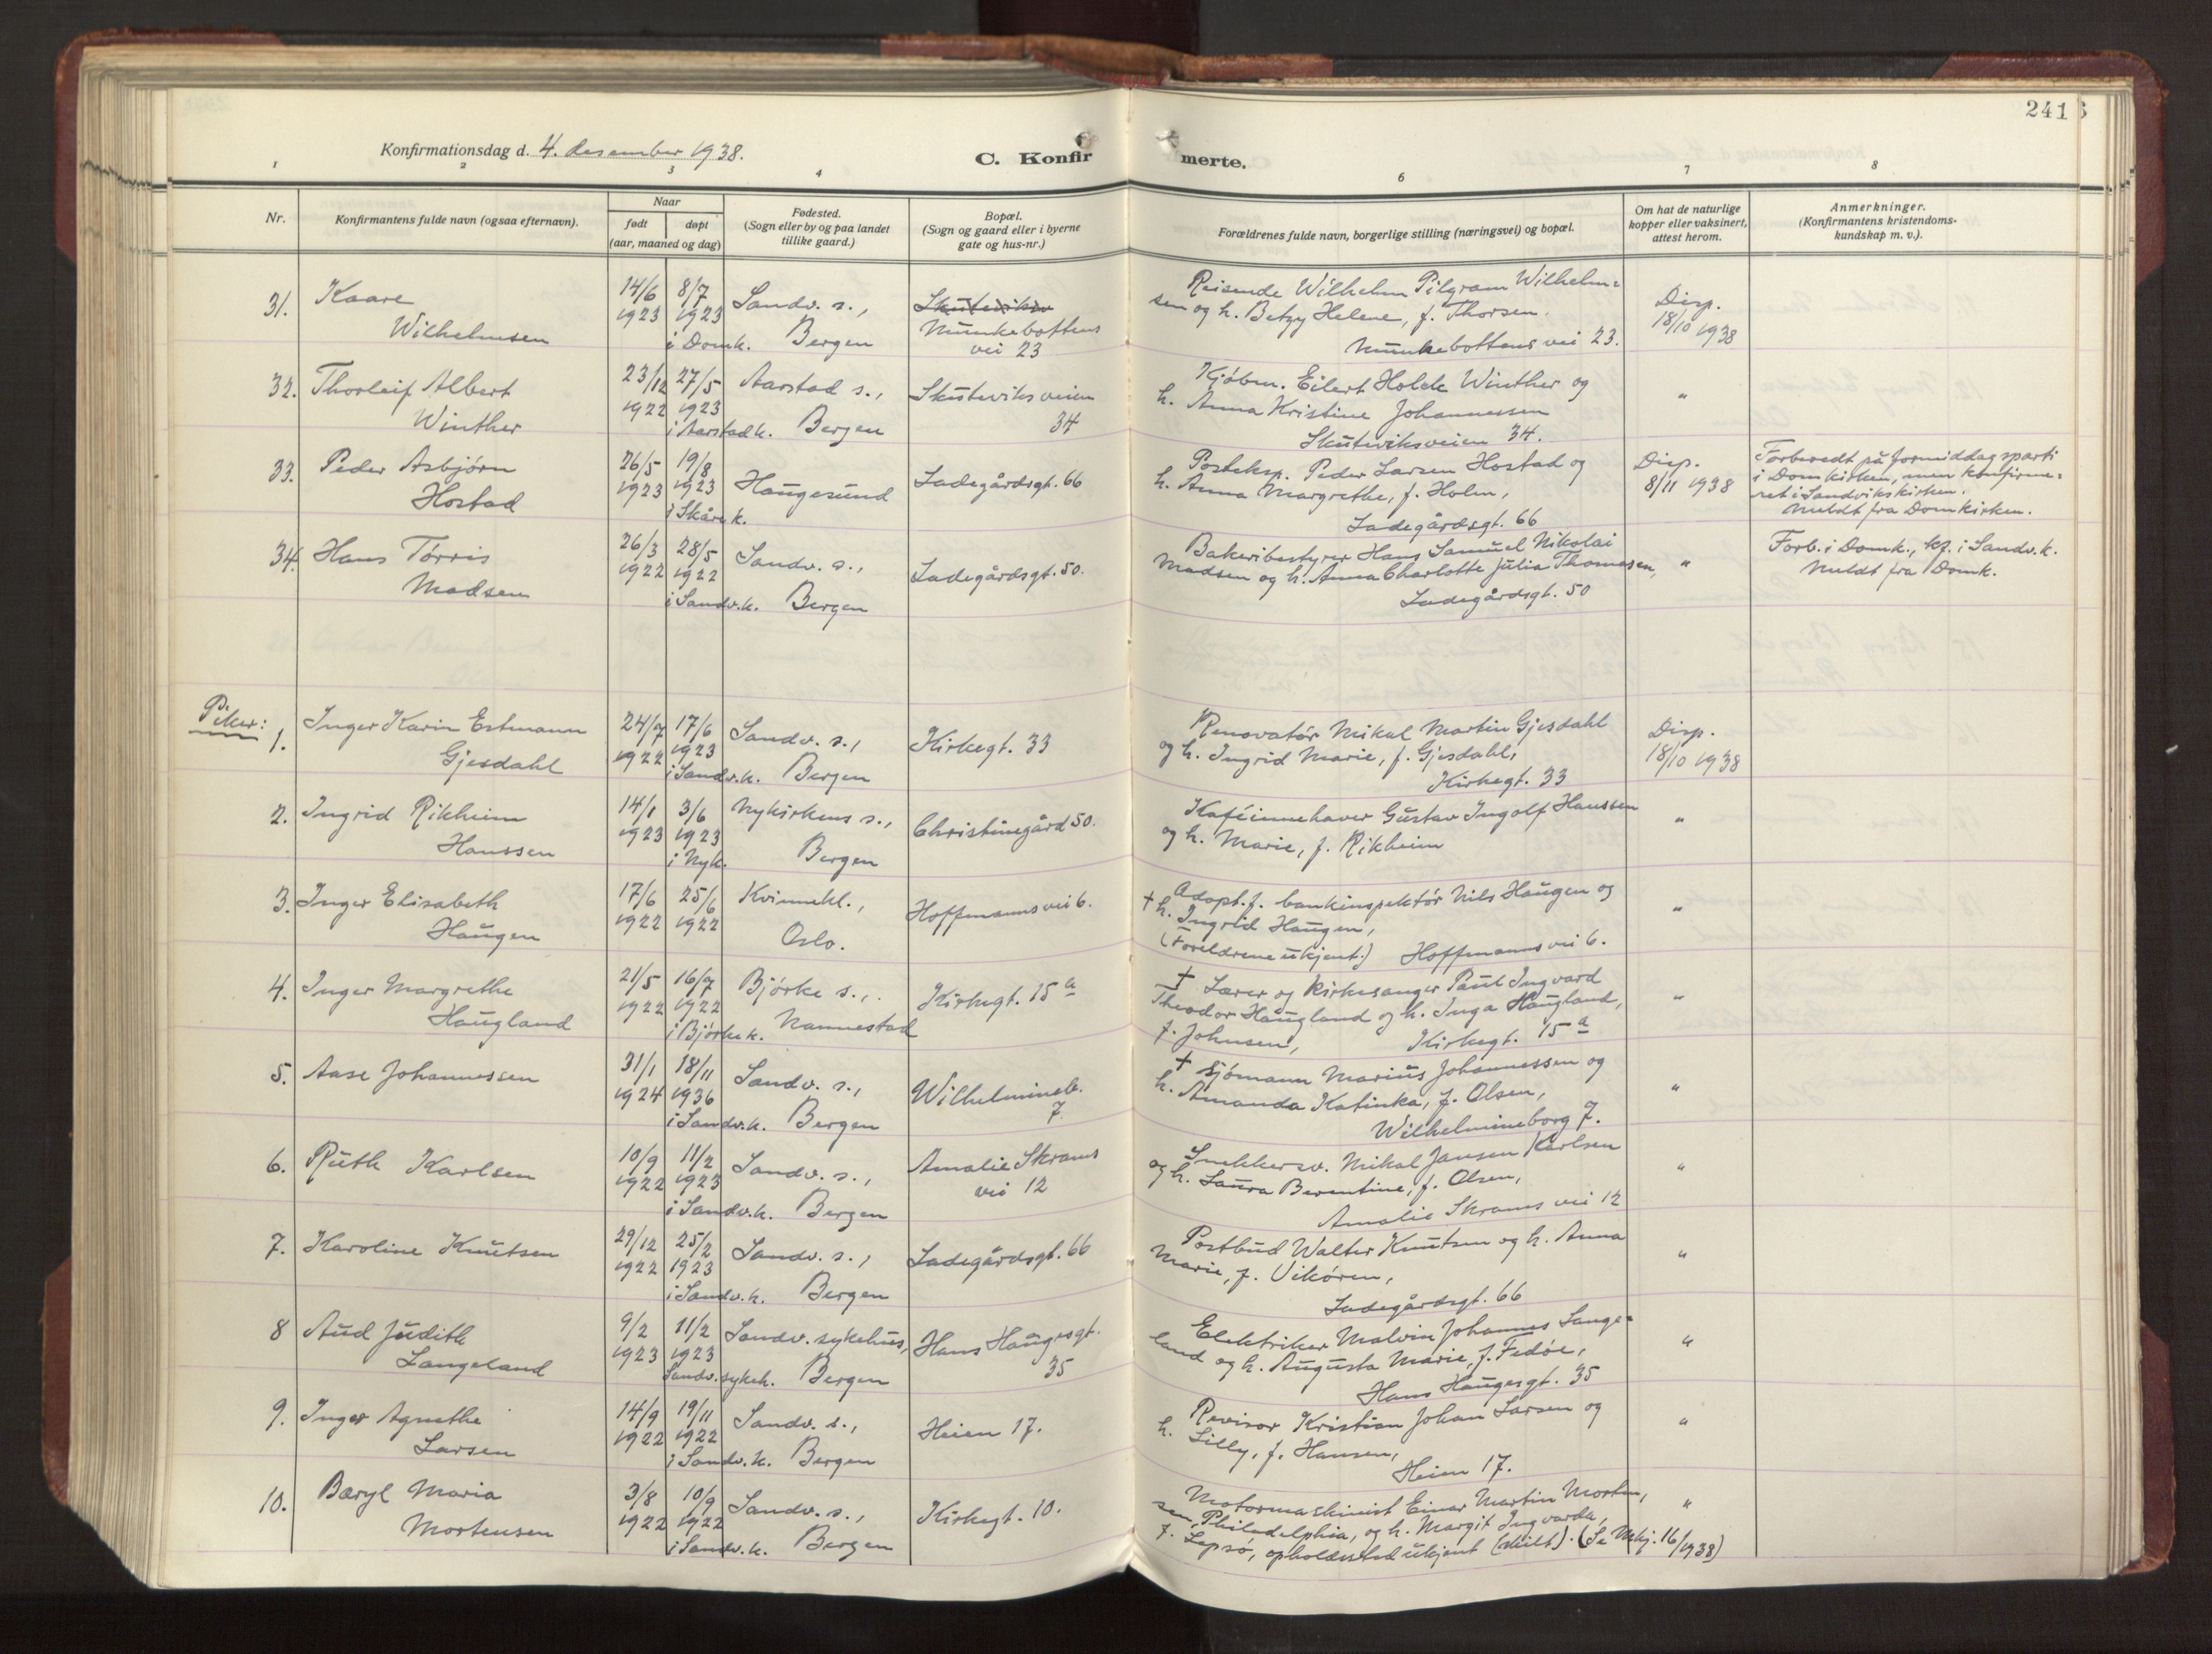 241
Konfirmationsdag d. 4. desember 1938.
C. Konfirmerte.
1 2 3 4 6 7 8
Nr.
Konfirmantens fulde navn (ogsaa efternavn).
Naar
født døpt
(aar, maaned og dag)
Fødested.
(Sogn eller by og paa landet
tillike gaard.)
Bopæl.
(Sogn og gaard eller i byerne
gate og hus-nr.)
Forældrenes fulde navn, borgerlige stilling (næringsvei) og bopæl.
Om hat de naturlige
kopper eller vaksinert,
attest herom.
Anmerkninger.
(Konfirmantens kristendoms-
kundskap m. v.).
31. Kaare
Wilhelmsen
14/6 1923
8/7 1923
i Domk.
Sandv. s.,
Bergen
Skuteviksv
Munkebottens
vei 23
Reisende Wilhelm Pilgram Wilhelm=
sen og h. Betzy Helene, f. Thorsen.
Munkebottens vei 23.
Disp.
18/10 1938
32. Thorleif Albert
Winther
23/12 1922
27/5 1923
i Aarstad k.
Aarstad s.,
Bergen
Skuteviksveien
34
Kjøbm. Eilert Holck Winther og
h. Anna Kristine Johannessen
Skuteviksveien 34.
"
33. Peder Asbjørn
Hostad
26/5 1923
19/8 1923
i Skåre k.
Haugesund
Ladegårdsgt. 66
Posteksp. Peder Larsen Hostad og
h. Anna Margrethe, f. Holm,
Ladegårdsgt. 66
Disp.
8/11 1938
Forberedt på formiddagsparti
i Domkirken, men konfirme=
ret i Sandvikskirken.
Meldt fra Domkirken.
34. Hans Tørris
Madsen
26/3 1922
28/5 1922
i Sandv. k.
Sandv. s.,
Bergen
Ladegårdsgt. 50.
Bakeribestyrer Hans Samuel Nikolai
Madsen og h. Anna Charlotte Julia Thomassen,
Ladegårdsgt. 50
"
Forb. i Domk., kf. i Sandv. k.
Meldt fra Domk.
Piker:
1. Inger Karin Estmann
Gjesdahl
24/7 1922
17/6 1923
i Sandv. k.
Sandv. s.,
Bergen
Kirkegt. 33
Renovatør Mikal Martin Gjesdahl
og h. Ingrid Marie, f. Gjesdahl,
Kirkegt. 33
Disp.
18/10 1938
2. Ingrid Rikheim
Hanssen
14/1 1923
3/6 1923
i Nyk.
Nykirkens s.,
Bergen
Christinegård 50.
Kaféinnehaver Gustav Ingolf Hanssen
og h. Marie, f. Rikheim
"
3. Inger Elisabeth
Haugen
17/6 1922
25/6 1922
Kvinnekl.,
Oslo.
Hoffmanns vei 6.
Adopt. f. bankinspektør Nils Haugen og
+ h. Ingrid Haugen,
(Foreldrene ukjent.) Hoffmanns vei 6.
"
4. Inger Margrethe
Haugland
21/5 1922
16/7 1922
i Bjørke k.
Bjørke s.,
Nannestad
Kirkegt. 15 a
+ Lærer og kirkesanger Paul Ingvard
Theodor Haugland og h. Inga Haugland,
f. Johnsen, Kirkegt. 15 a
"
5. Aase Johannessen
31/1 1924
18/11 1936
i Sandv. k.
Sandv. s.,
Bergen
Wilhelmineb.
7.
+ Sjømann Marius Johannessen og
h. Amanda Katinka, f. Olsen,
Wilhelmineborg 7.
"
6. Ruth Karlsen
10/9 1922
11/2 1923
i Sandv. k.
Sandv. s.,
Bergen
Amalie Skrams
vei 12
Snekkersv. Mikal Jansen Karlsen
og h. Laura Berentine, f. Olsen,
Amalie Skrams vei 12
"
7. Karoline Knutsen
29/12 1922
25/2 1923
i Sandv. k.
Sandv. s.,
Bergen
Ladegårdsgt. 66
Postbud Walter Knutsen og h. Anna
Marie, f. Vikøren,
Ladegårdsgt. 66
"
8 Aud Judith
Langeland
9/2 1923
11/2 1923
Sandv. sykeh.
Sandv. sykehus,
Bergen
Hans Haugesgt.
35
Elektriker Malvin Johannes Lange=
land og h. Augusta Marie, f. Fedøe,
Hans Haugesgt. 35
"
9. Inger Agnethe
Larsen
14/9 1922
19/11 1922
i Sandv. k.
Sandv. s.,
Bergen
Heien 17.
Revisor Kristian Johan Larsen og
h. Lilly, f. Hansen,
Heien 17.
"
10. Beryl Maria
Mortensen
3/8 1922
10/9 1922
i Sandv. k.
Sandv. s.,
Bergen
Kirkegt. 10.
Motormaskinist Einar Martin Morten,
sen, Philadelphia, og h. Margit Ingvarda,
f. Lepsø, opholdssted ukjent (skilt). (Se Mkj. 16/1938)
"